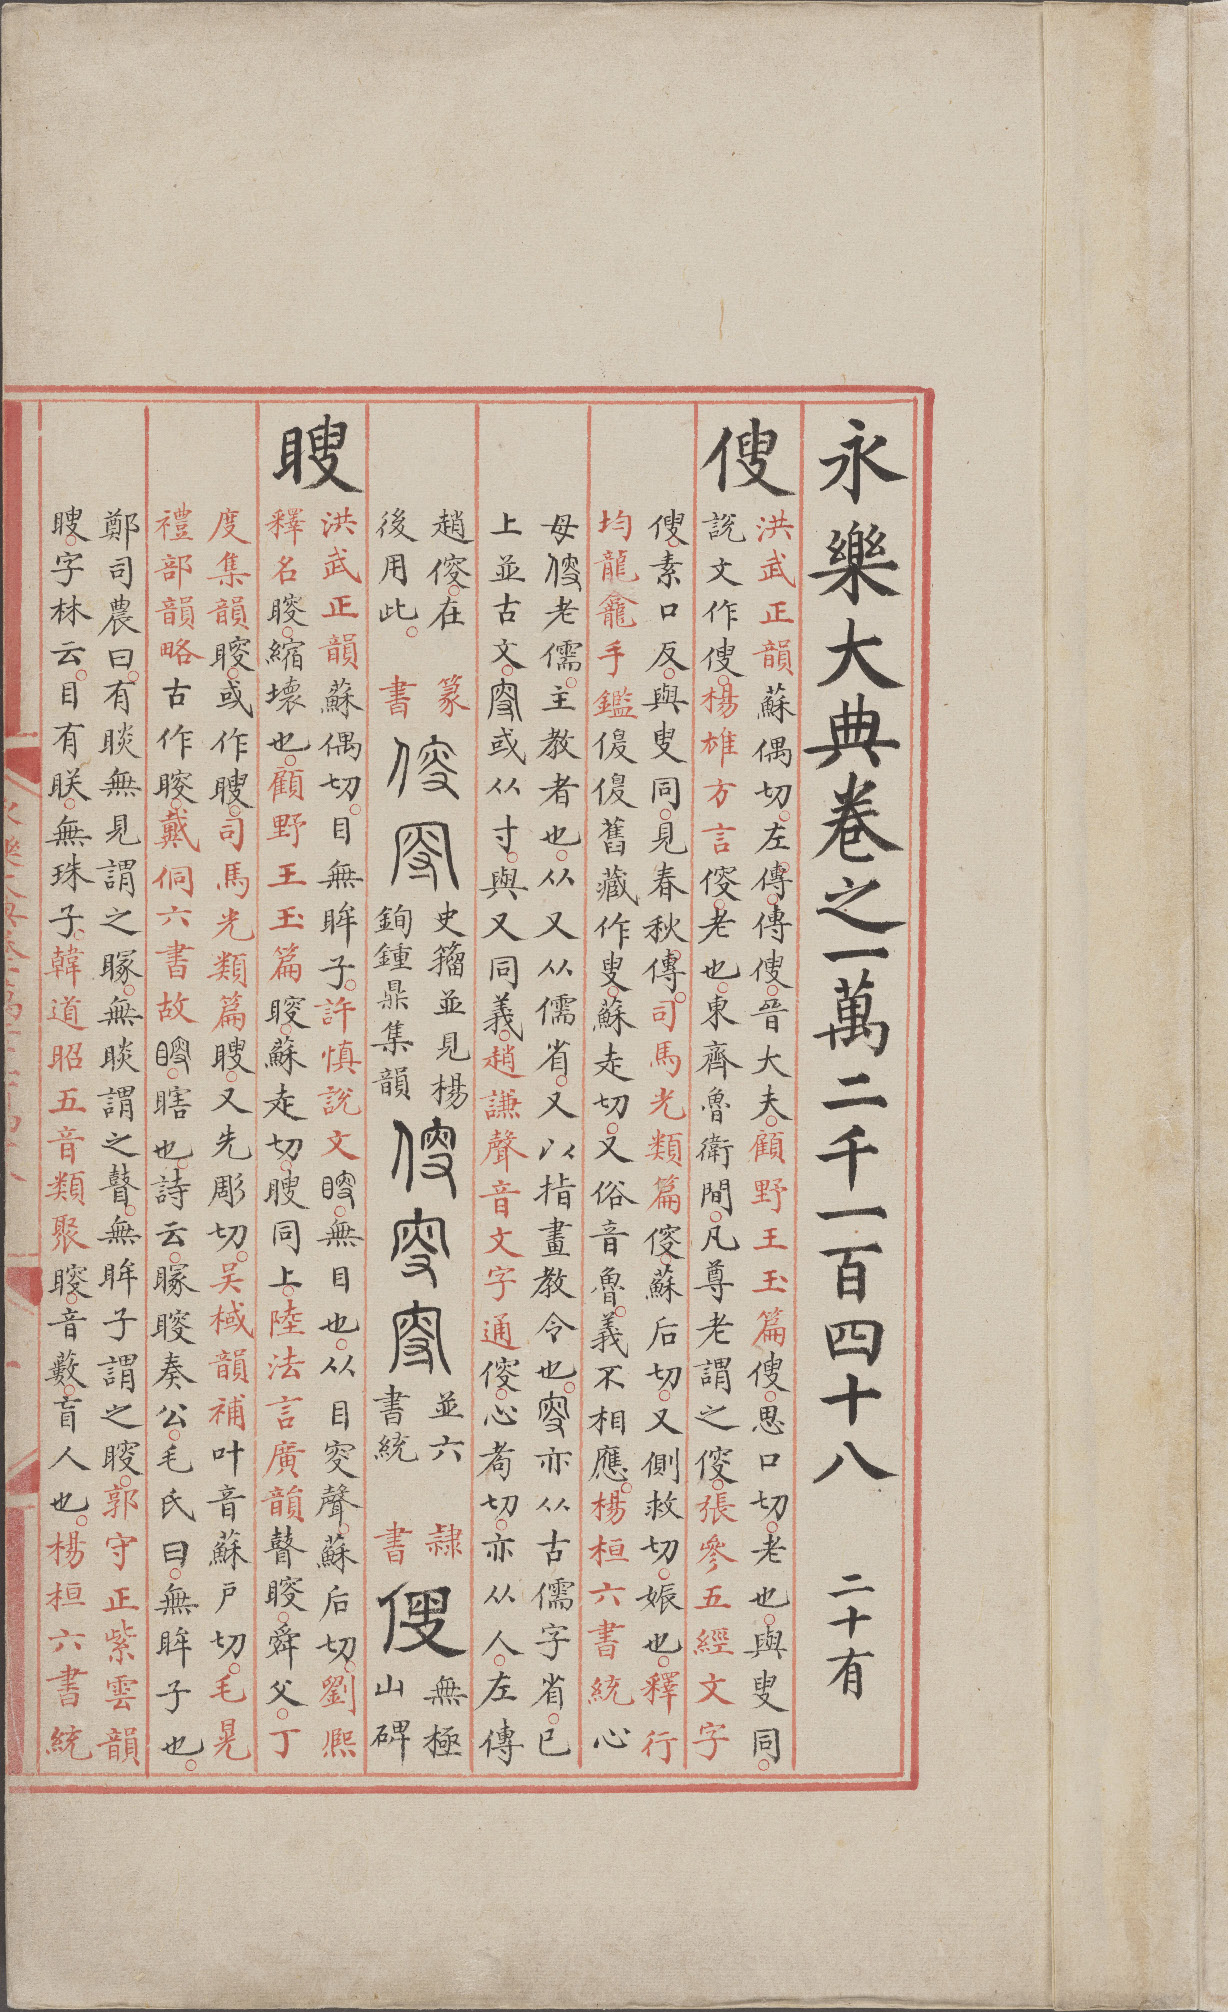 永樂大典卷之一萬二千一百四十八　二十有
傁
洪武正韻蘇偶切左傳傳傁晉大夫顧野王玉篇傁思口切老也與叟同
說文作傁楊雄方言傁老也東齊魯衛間凡尊老謂之傁張參五經文字
傁素口反與叟同見春秋傳司馬光類篇傁蘇后切又側救切娠也釋行
均龍龕手鑑傻傻舊藏作叟蘇走切又俗音魯義不相應楊桓六書統心
母傁老儒主教者也从又从儒省又以指畫教令也叜亦从古儒字省已
上並古文叜或从寸與又同義趙謙聲音文字通傁心耇切亦从人左傳
趙傁在
後用此
篆書
傁叜
史籀並見楊
鉤鍾鼎集韻
傁叜叜
並六
書統
隸書
傁
無極
山碑
瞍
洪武正韻蘇偶切目無眸子許慎說文瞍無目也从目叜聲蘇后切劉熙
釋名瞍縮壞也顧野王玉篇瞍蘇走切瞍同上陸法言廣韻瞽瞍舜父丁
度集韻瞍或作瞍司馬光類篇瞍又先彫切吴棫韻補叶音蘇戶切毛晃
禮部韻略古作瞍戴侗六書故瞍瞎也詩云矇瞍奏公毛氏曰無眸子也
鄭司農曰有睒無見謂之矇無睒謂之瞽無眸子謂之瞍郭守正紫雲韻
瞍字林云目有眹無珠子韓道昭五音類聚瞍音藪盲人也楊桓六書統